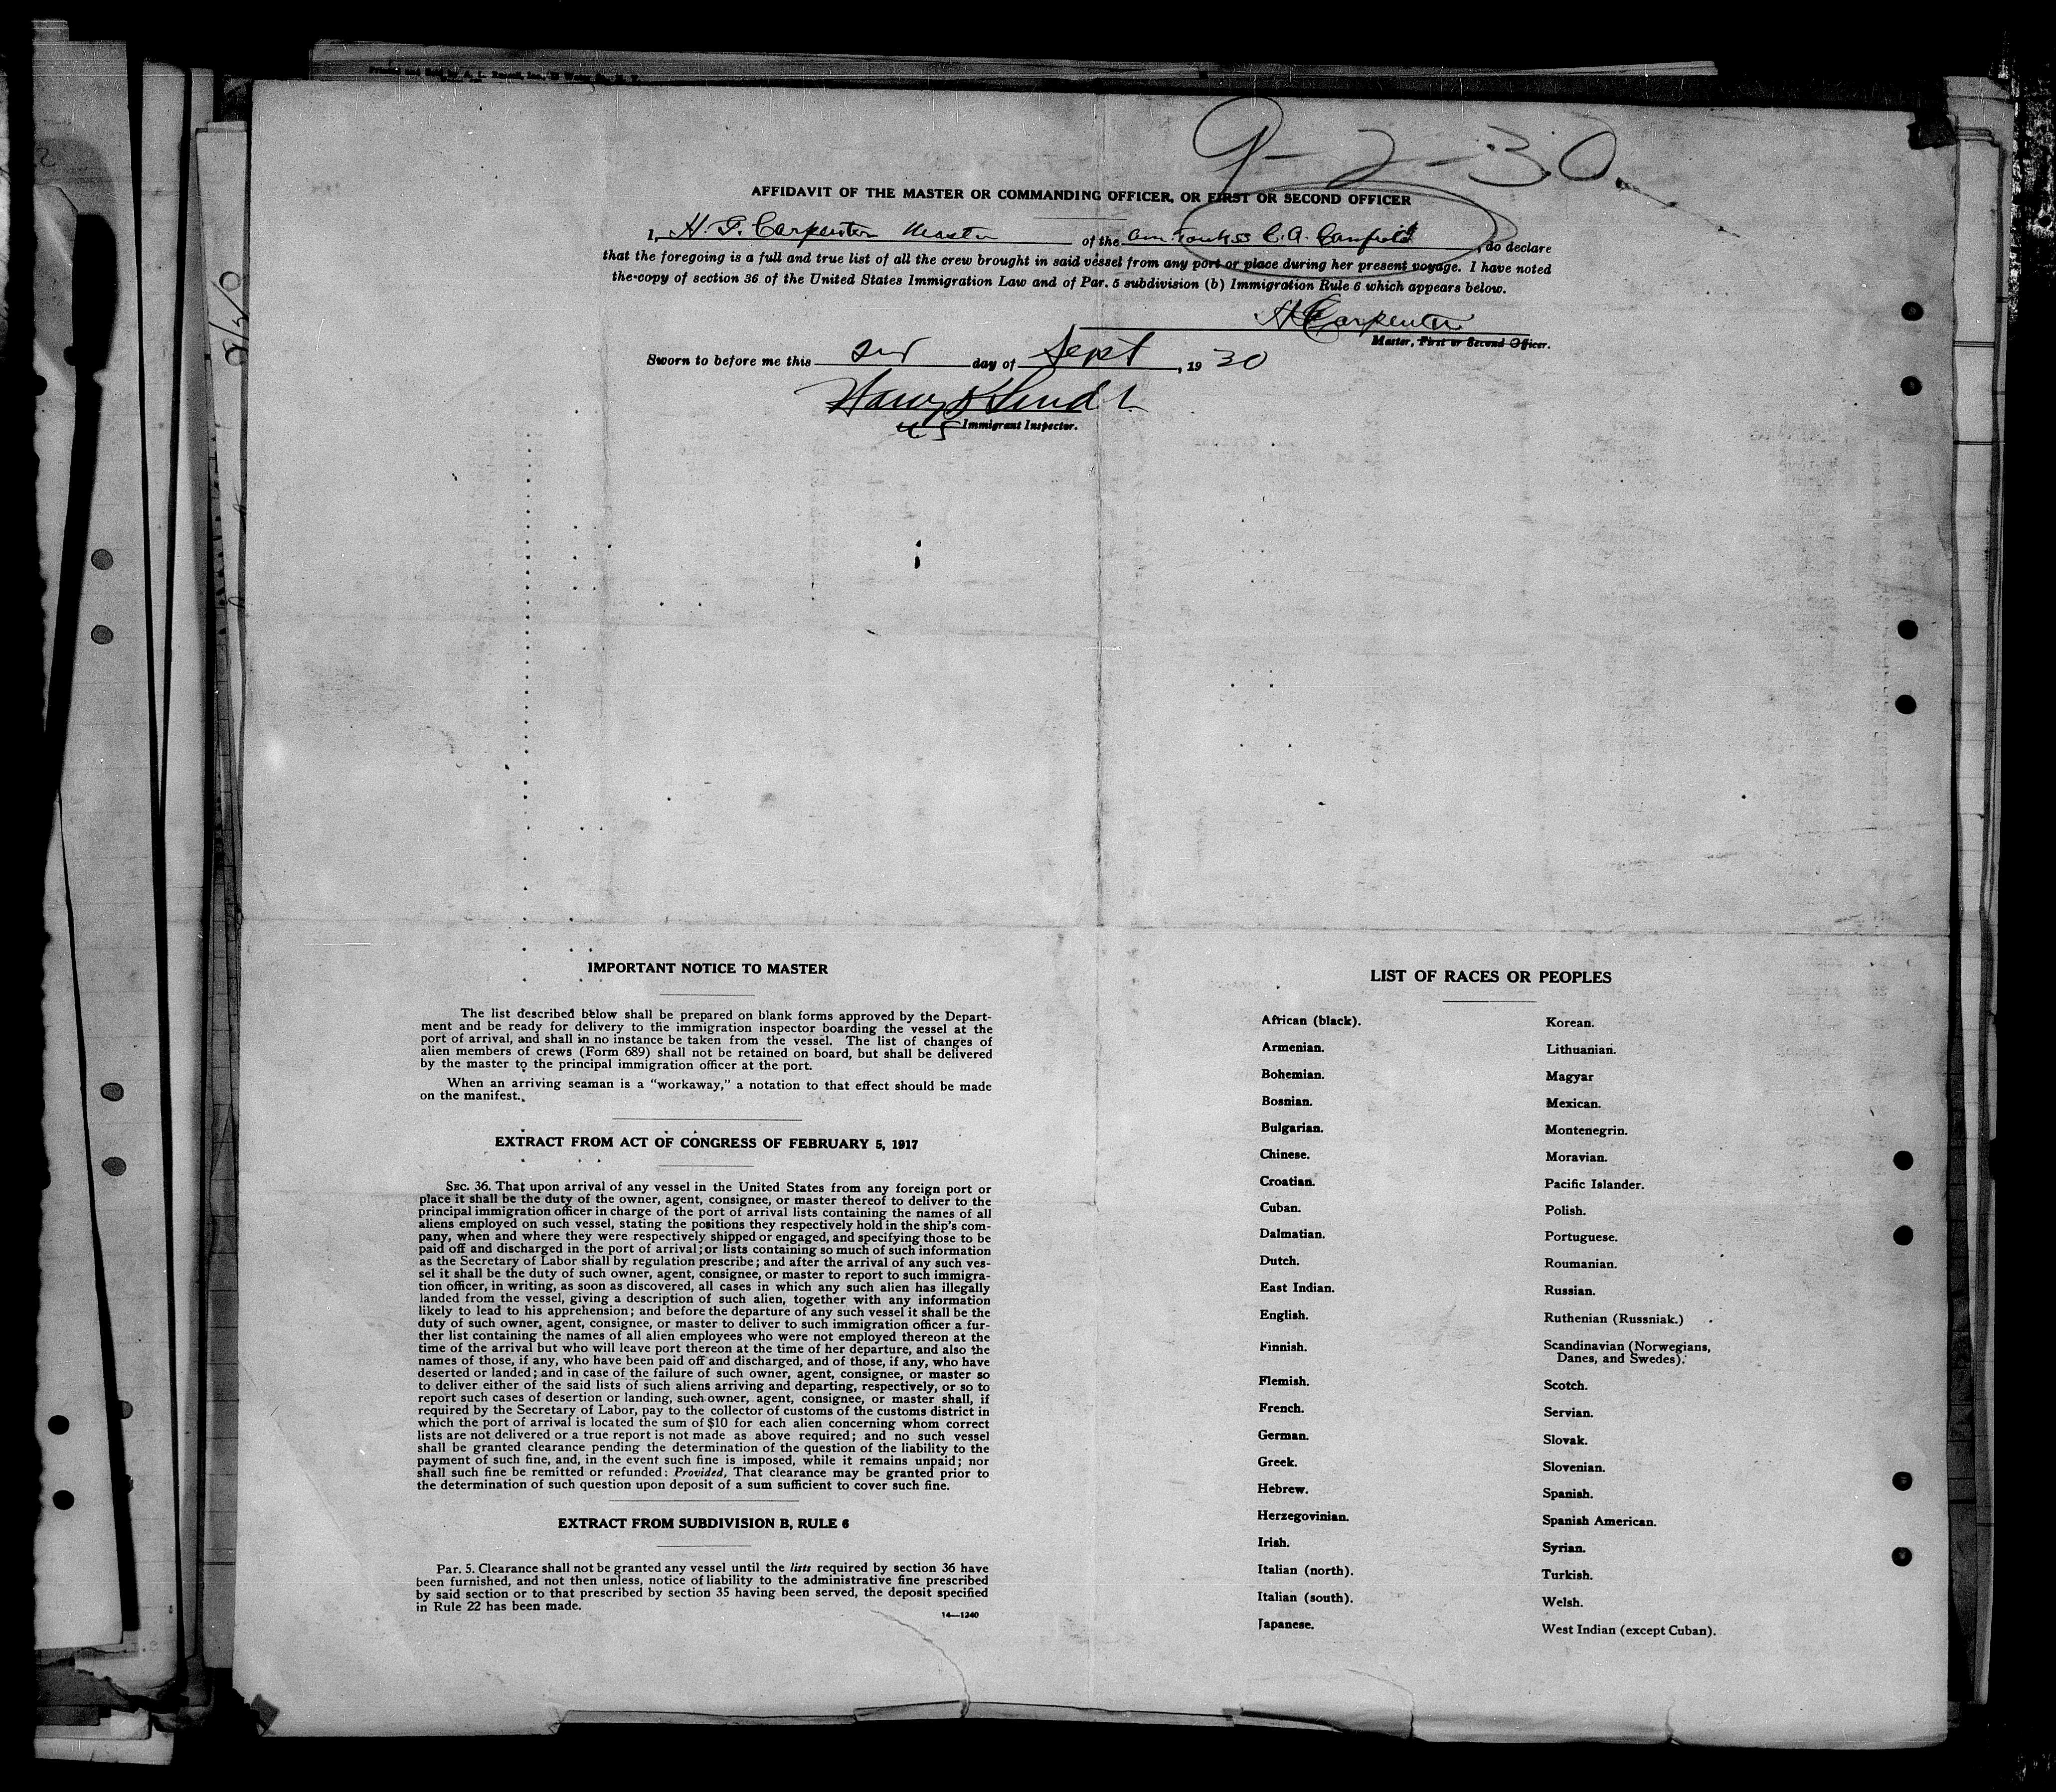 9-2-30.
AFFIDAVIT OF THE MASTER OR COMMANDING OFFICER, OR FIRST OR SECOND OFFICER
I, H. G. Carpenter Master of the Am. Tank SS C. A. Canfield, do declare
that the foregoing is a full and true list of all the crew brought in said vessel from any port or place during her present voyage. I have noted
the copy of section 36 of the United States Immigration Law and of Par. 5 subdivision (b) Immigration Rule 6 which appears below.
H Carpenter
Master, First or Second Officer.
Sworn to before me this 2nd day of Sept, 1930
Harry
US Immigrant Inspector.
IMPORTANT NOTICE TO MASTER
The list described below shall be prepared on blank forms approved by the Depart-
ment and be ready for delivery to the immigration inspector boarding the vessel at the
port of arrival, and shall in no instance be taken from the vessel. The list of changes of
alien members of crews (Form 689) shall not be retained on board, but shall be delivered
by the master to the principal immigration officer at the port.
When an arriving seaman is a "workaway," a notation to that effect should be made
on the manifest.
EXTRACT FROM ACT OF CONGRESS OF FEBRUARY 5, 1917
SEC. 36. That upon arrival of any vessel in the United States from any foreign port or
place it shall be the duty of the owner, agent, consignee, or master thereof to deliver to the
principal immigration officer in charge of the port of arrival lists containing the names of all
aliens employed on such vessel, stating the positions they respectively hold in the ship's com-
pany, when and where they were respectively shipped or engaged, and specifying those to be
paid off and discharged in the port of arrival; or lists containing so much of such information
as the Secretary of Labor shall by regulation prescribe; and after the arrival of any such ves-
sel it shall be the duty of such owner, agent, consignee, or master to report to such immigra-
tion officer, in writing, as soon as discovered, all cases in which any such alien has illegally
landed from the vessel, giving a description of such alien, together with any information
likely to lead to his apprehension; and before the departure of any such vessel it shall be the
duty of such owner, agent, consignee, or master to deliver to such immigration officer a fur-
ther list containing the names of all alien employees who were not employed thereon at the
time of the arrival but who will leave port thereon at the time of her departure, and also the
names of those, if any, who have been paid off and discharged, and of those, if any, who have
deserted or landed; and in case of the failure of such owner, agent, consignee, or master so
to deliver either of the said lists of such aliens arriving and departing, respectively, or so to
report such cases of desertion or landing, such owner, agent, consignee, or master shall, if
required by the Secretary of Labor, pay to the collector of customs of the customs district in
which the port of arrival is located the sum of $10 for each alien concerning whom correct
lists are not delivered or a true report is not made as above required; and no such vessel
shall be granted clearance pending the determination of the question of the liability to the
payment of such fine, and, in the event such fine is imposed, while it remains unpaid; nor
shall such fine be remitted or refunded: Provided, That clearance may be granted prior to
the determination of such question upon deposit of a sum sufficient to cover such fine.
EXTRACT FROM SUBDIVISION B, RULE 6
Par. 5. Clearance shall not be granted any vessel until the lists required by section 36 have
been furnished, and not then unless, notice of liability to the administrative fine prescribed
by said section or to that prescribed by section 35 having been served, the deposit specified
in Rule 22 has been made.
14—1240
LIST OF RACES OR PEOPLES
African (black).
Armenian.
Bohemian.
Bosnian.
Bulgarian.
Chinese.
Croatian.
Cuban.
Dalmatian.
Dutch.
East Indian.
English.
Finnish.
Flemish.
French.
German.
Greek.
Hebrew.
Herzegovinian.
Irish.
Italian (north).
Italian (south).
Japanese.
Korean.
Lithuanian.
Magyar
Mexican.
Montenegrin.
Moravian.
Pacific Islander.
Polish.
Portuguese.
Roumanian.
Russian.
Ruthenian (Russniak.)
Scandinavian (Norwegians,
Danes, and Swedes).
Scotch.
Servian.
Slovak.
Slovenian.
Spanish.
Spanish American.
Syrian.
Turkish.
Welsh.
West Indian (except Cuban).